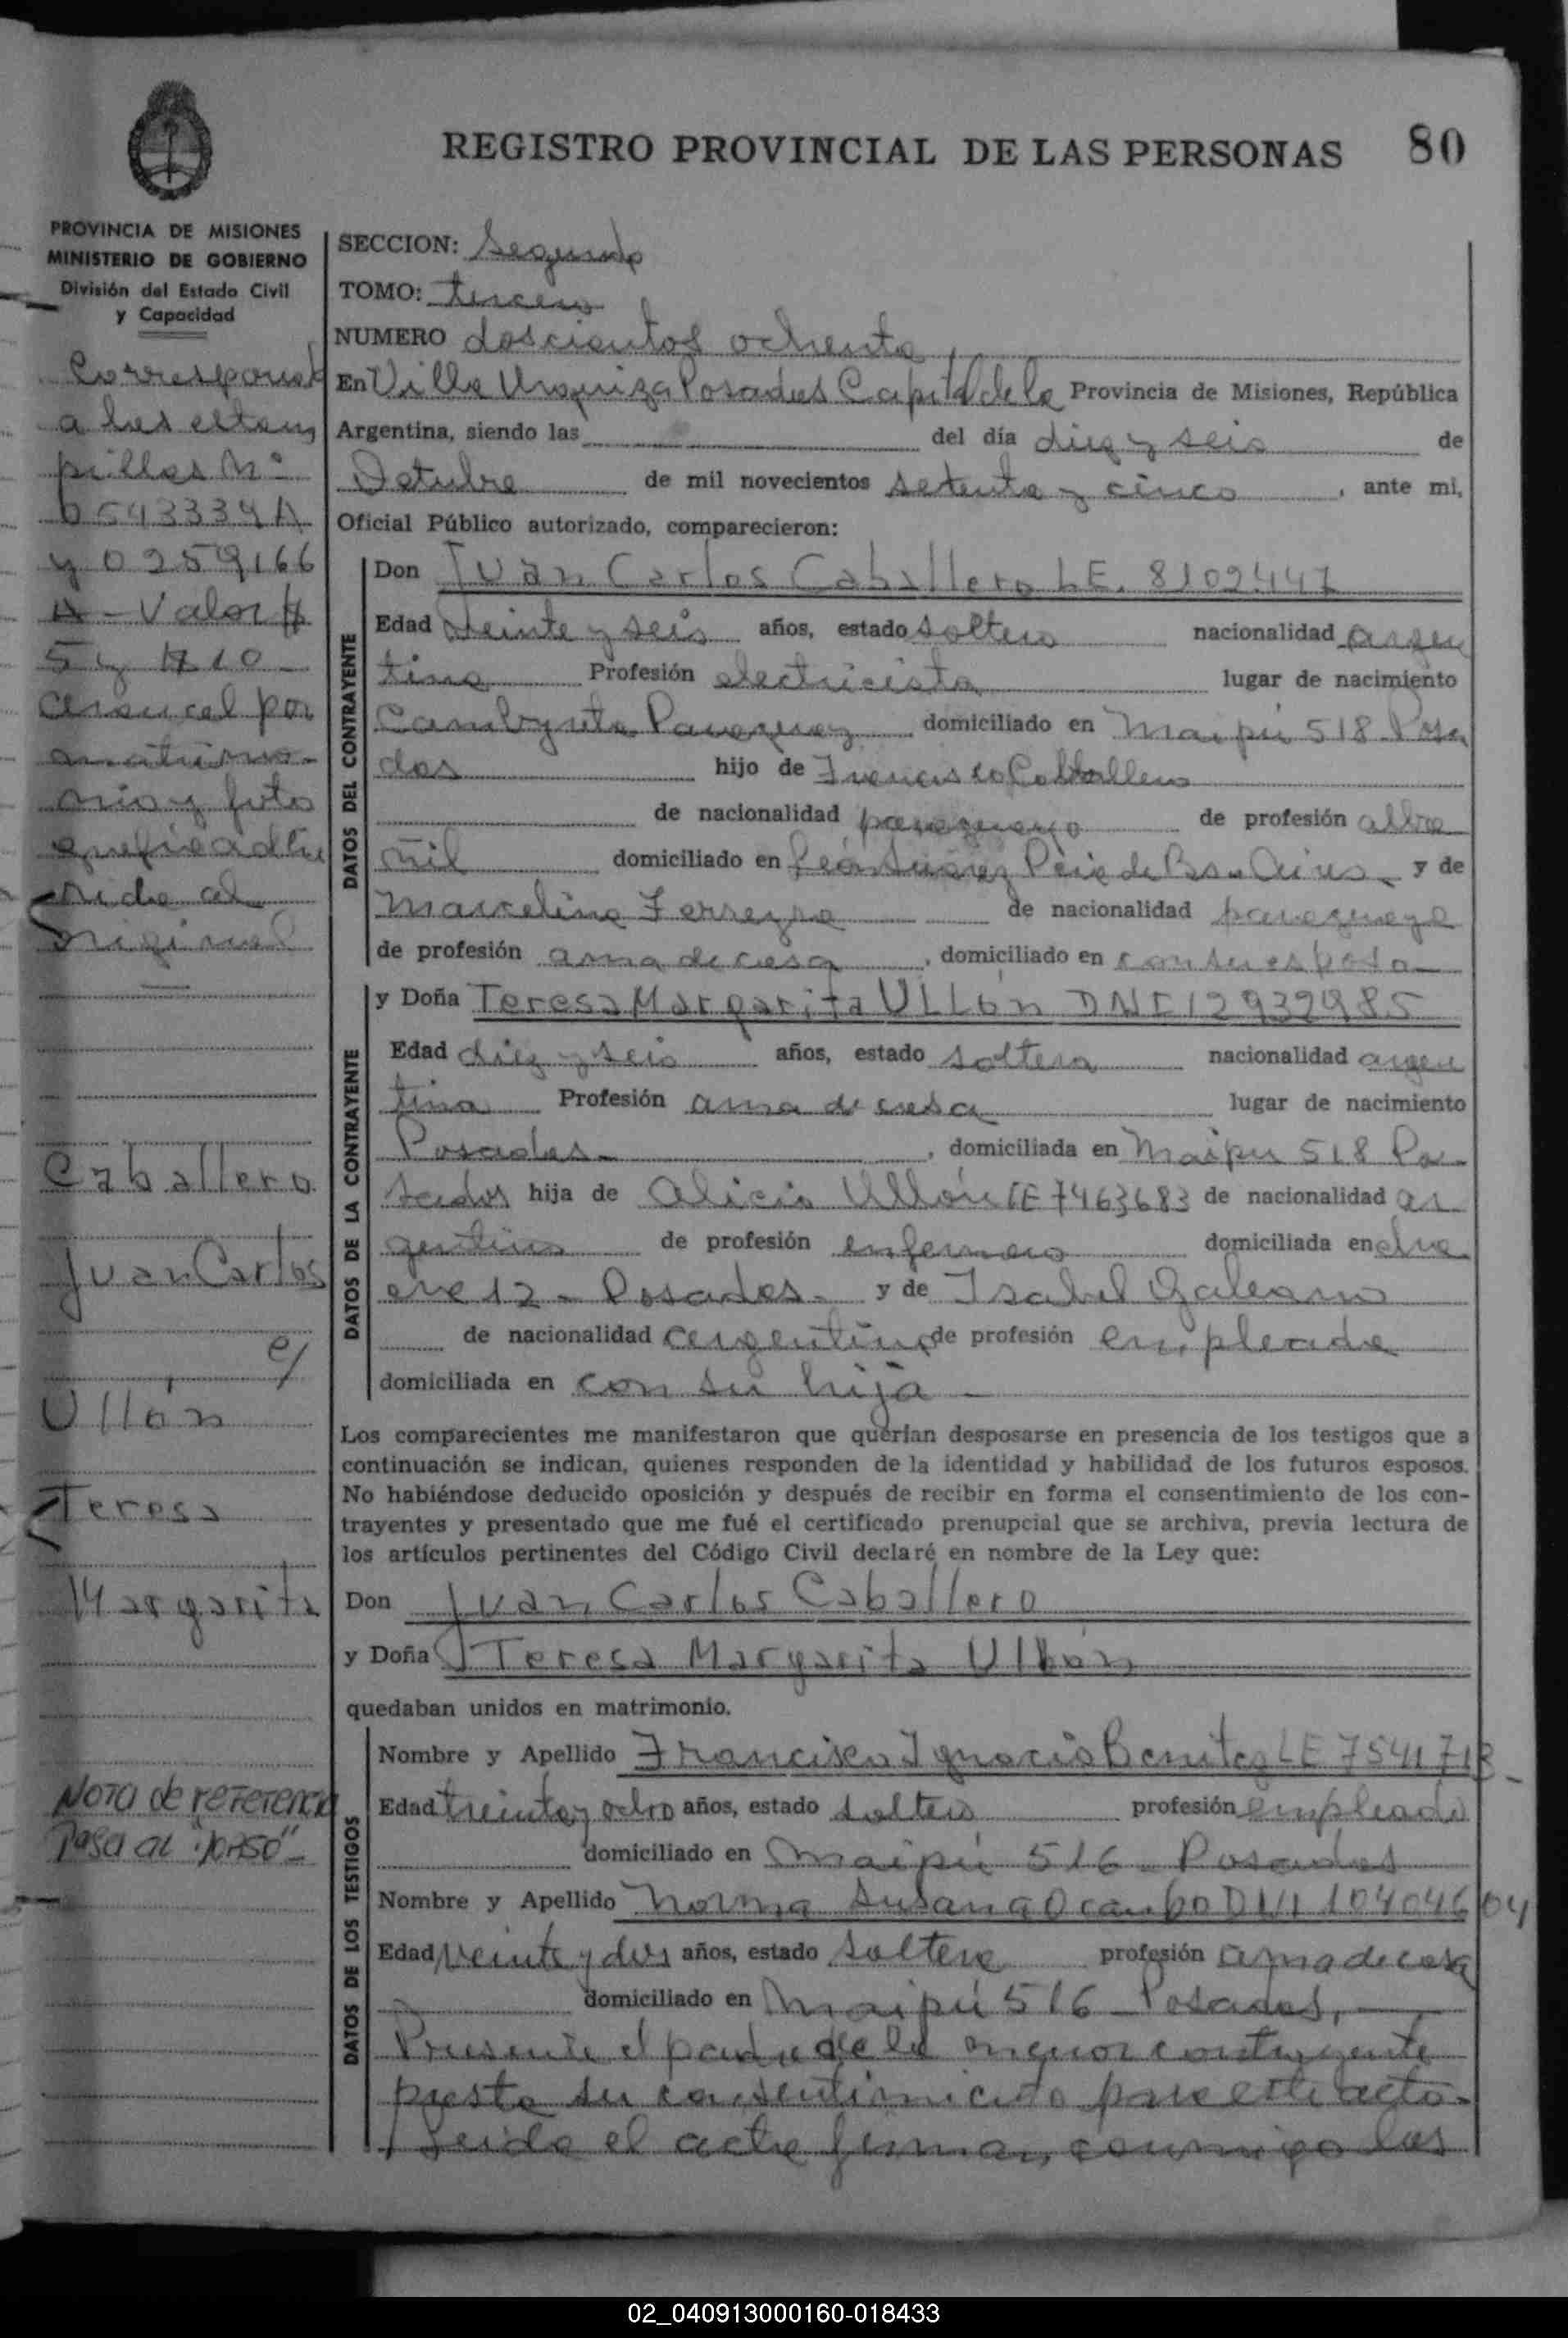 REGISTRO PROVINCIAL DE LAS PERSONAS 80
PROVINCIA DE MISIONES
MINISTERIO DE GOBIERNO
División del Estado Civil
y Capacidad
Corresponde
a las estam
pillas Nº
0543334A
y 0259166
A - Valor $
5 y $ 10 -
arancel por
matrimo-
nio y foto
grafia adhe
rida al
original
Caballero
Juan Carlos
c/
Ullón
Teresa
Margarita
NOTA de referencia
Pasa al "dorso"
SECCION: Segunda
TOMO: tercero
NUMERO doscientos ochenta
En Villa Urquiza Posadas Capital de la Provincia de Misiones, República
Argentina, siendo las del día diez y seis de
Octubre de mil novecientos setenta y cinco, ante mi,
Oficial Público autorizado, comparecieron:
DATOS DEL CONTRAYENTE
Don Juan Carlos Caballero L.E. 8102447
Edad veinte y seis años, estado soltero nacionalidad argen
tina Profesión electricista lugar de nacimiento
Cambyreta Paraguay domiciliado en Maipú 518 Posa
das hijo de Francisco Caballero
de nacionalidad paraguayo de profesión alba
ñil domiciliado en León Suárez Pcia de Bs. Aires y de
Marcelina Ferreyra de nacionalidad paraguaya
de profesión ama de casa, domiciliado en con su esposo
DATOS DE LA CONTRAYENTE
y Doña Teresa Margarita Ullón DNI 12932985
Edad diez y seis años, estado soltera nacionalidad argen
tina Profesión ama de casa lugar de nacimiento
Posadas, domiciliada en Maipu 518 Po-
sadas hija de Alicio Ullón LE 7463683 de nacionalidad ar
gentino de profesión enfermero domiciliada en cha
cra 12 - Posadas - y de Isabel Galeano
de nacionalidad argentina de profesión empleada
domiciliada en con su hija -
Los comparecientes me manifestaron que querían desposarse en presencia de los testigos que a
continuación se indican, quienes responden de la identidad y habilidad de los futuros esposos.
No habiéndose deducido oposición y después de recibir en forma el consentimiento de los con-
trayentes y presentado que me fué el certificado prenupcial que se archiva, previa lectura de
los artículos pertinentes del Código Civil declaré en nombre de la Ley que:
Don Juan Carlos Caballero
y Doña Teresa Margarita Ullón
quedaban unidos en matrimonio.
DATOS DE LOS TESTIGOS
Nombre y Apellido Francisco Ignacio Benitez LE 7541713
Edad treinta y ocho años, estado soltero profesión empleado
domiciliado en Maipú 516 - Posadas
Nombre y Apellido Norma Susana Ocampo DNI
Edad veinte y dos años, estado soltera profesión ama de casa
domiciliado en Maipú 516 - Posadas,
Presente el padre de la menor contrayente
presta su consentimiento para este acto.
Leida el acta firman conmigo los
02_040913000160-018433